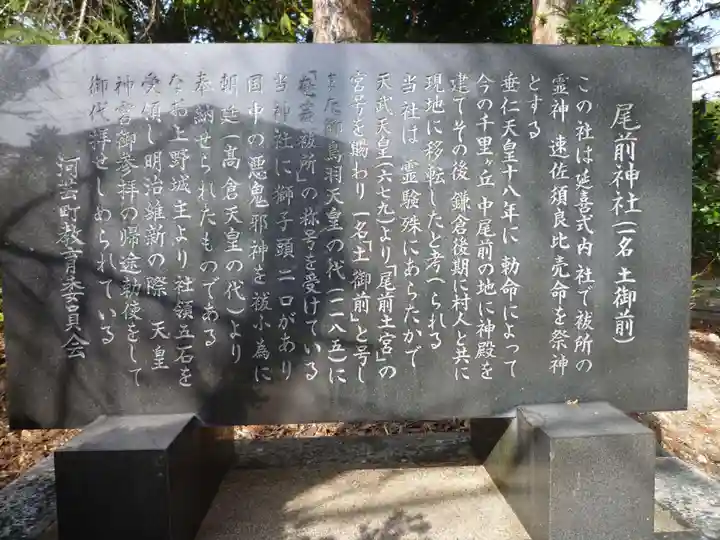 尾前神社(一名 土御前)
この社は延喜式内社で祓所の
霊神 速佐須良比売命を祭神
とする
垂仁天皇十八年に 勅命によって
今の千里ヶ丘 中尾前の地に神殿を
建てその後 鎌倉後期に村人と共に
現地に移転したと考へられる
当社は 霊験殊にあらたかで
天武天皇(六七九)より「尾前土宮」の
宮号を賜わり(一名「土御前」)と号し
また 御鳥羽天皇の代(一一八五)に
祓所」の称号を受けている
当神社に獅子頭 二口があり
国中の悪鬼 邪神を祓ふ為に
朝廷(高倉天皇の代)より
奉納せられたものである
なお上野城主より 社領五石を
受領し 明治維新の際 天皇
神宮御参拝の帰途勅使をして
御代拝せしめられている
河芸町教育委員会